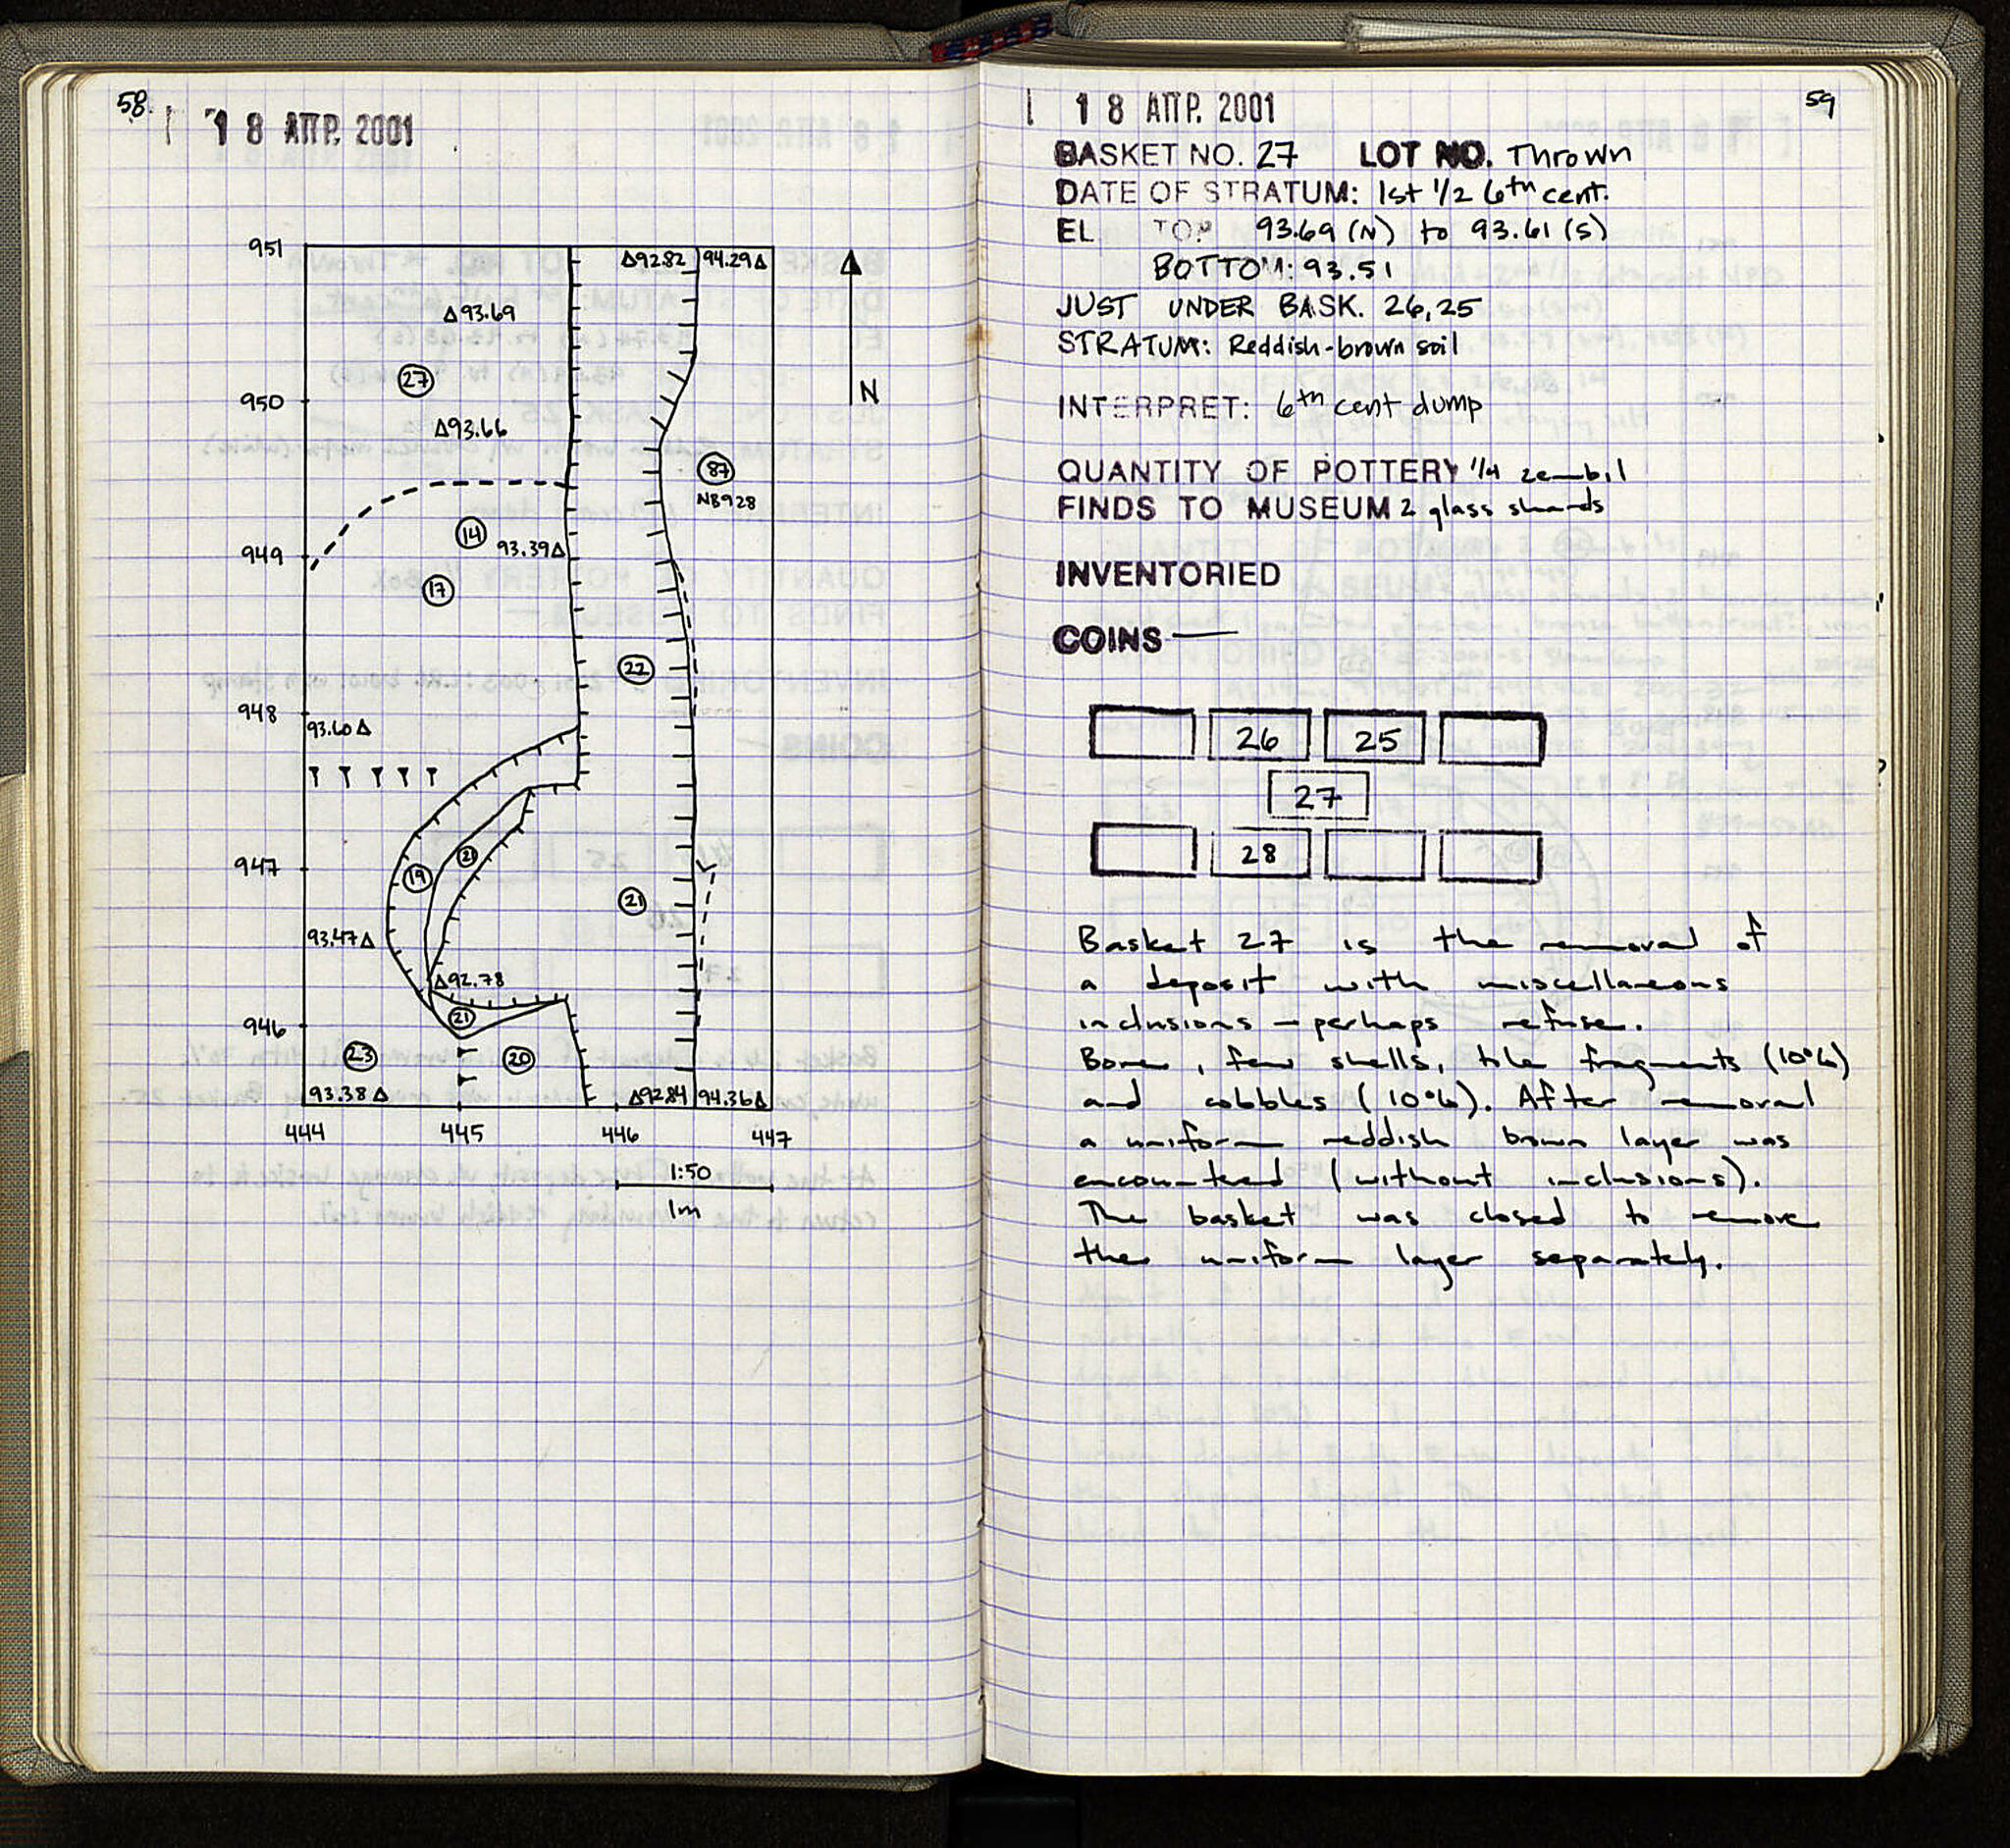 58.
18 ΑΠΡ. 2001
951
Δ92.82 94.29Δ
Δ93.69
27
950
N
Δ93.66
87
NB928
14
93.39Δ
949
17
22
948
93.60Δ
21
947
19
21
93.47Δ
Δ92.78
21
946
23
20
93.38Δ
Δ92.84 94.36Δ
444 445 446 447
1:50
1m
59
18 ΑΠΡ. 2001
BASKET NO. 27 LOT NO. Thrown
DATE OF STRATUM: 1st 1/2 6th cent.
EL. TOP 93.69 (N) to 93.61 (S)
BOTTOM: 93.51
JUST UNDER BASK. 26, 25
STRATUM: Reddish-brown soil
INTERPRET: 6th cent dump
QUANTITY OF POTTERY 1/4 zembil
FINDS TO MUSEUM 2 glass shards
INVENTORIED
COINS —
26 25
27
28
Basket 27 is the removal of
a deposit with miscellaneous
inclusions – perhaps refuse.
Bone, few shells, tile fragments (10%)
and cobbles (10%). After removal
a uniform reddish brown layer was
encountered (without inclusions).
The basket was closed to remove
the uniform layer separately.